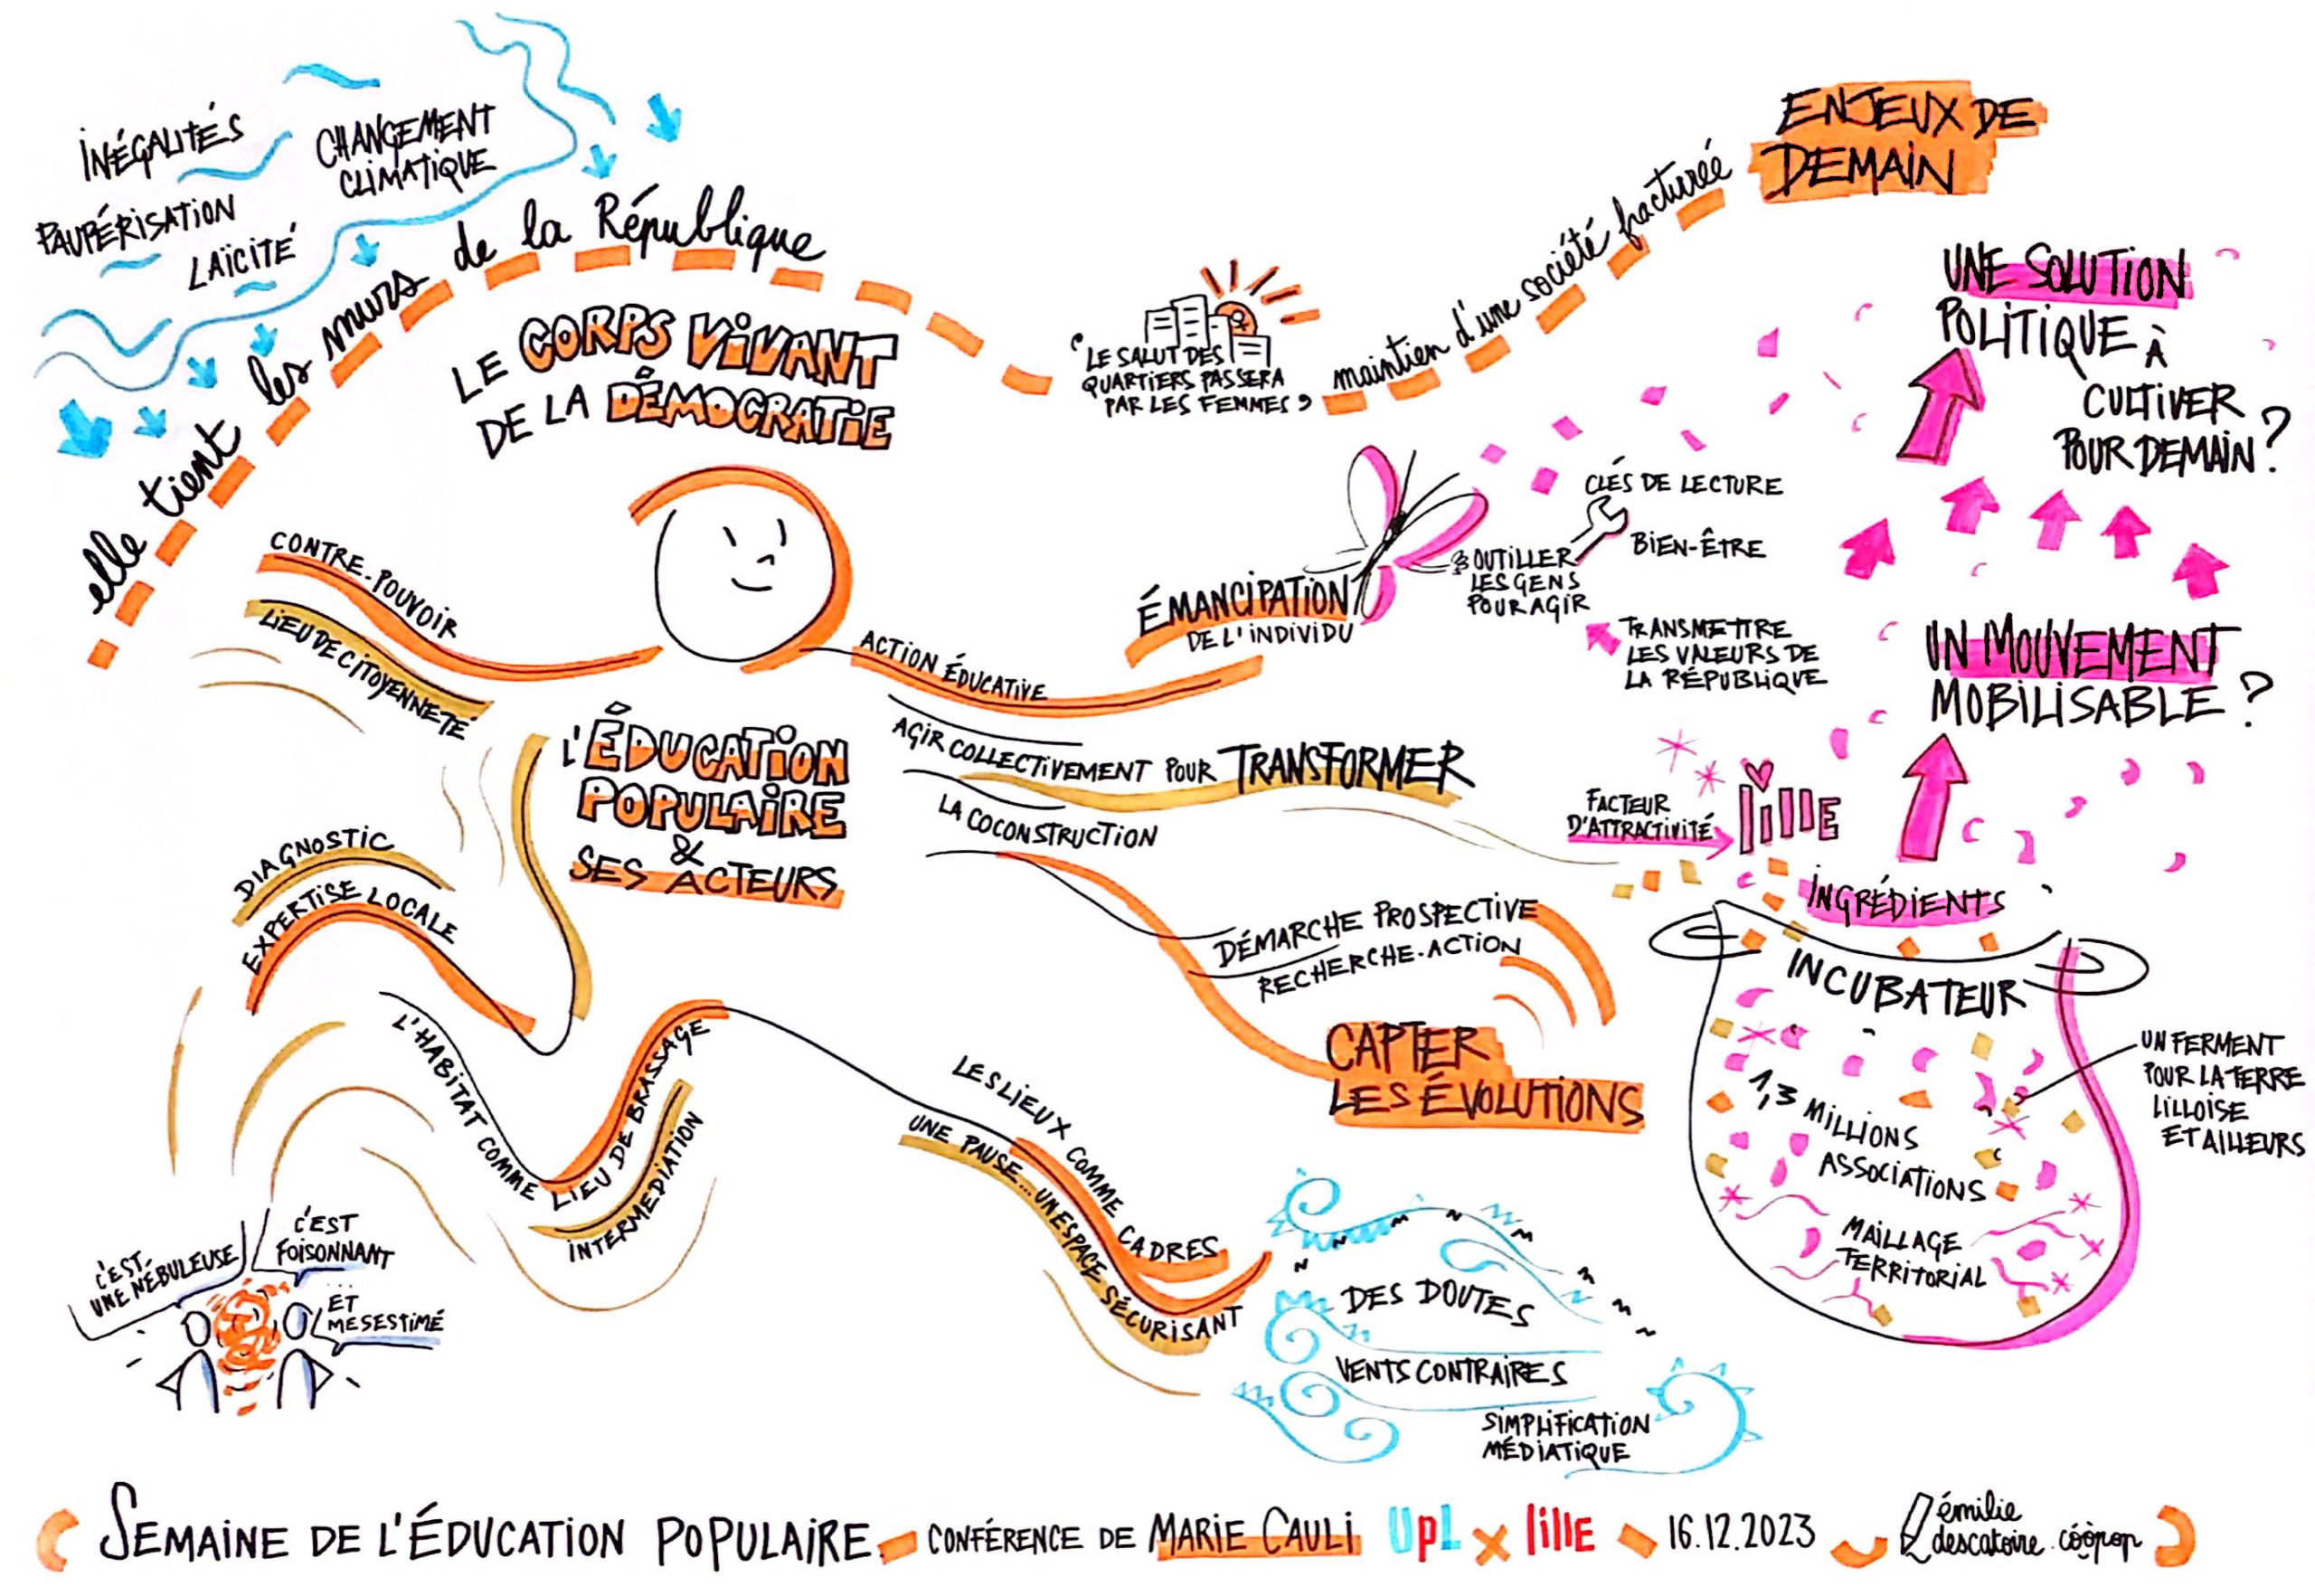 INÉGALITÉS
CHANGEMENT
CLIMATIQUE
PAUPÉRISATION
LAÏCITÉ
elle tient les murs de la République
LE CORPS VIVANT
DE LA DÉMOCRATIE
"LE SALUT DES
QUARTIERS PASSERA
PAR LES FEMMES"
maintien d'une société facturéé
ENJEUX DE
DEMAIN
UNE SOLUTION
POLITIQUE À
CULTIVER
POUR DEMAIN?
CONTRE-POUVOIR
LIEU DE CITOYENNETÉ
ACTION ÉDUCATIVE
ÉMANCIPATION
DE L'INDIVIDU
OUTILLER
LES GENS
POUR AGIR
CLÉS DE LECTURE
BIEN-ÊTRE
TRANSMETTRE
LES VALEURS DE
LA RÉPUBLIQUE
UN MOUVEMENT
MOBILISABLE?
L'ÉDUCATION
POPULAIRE
&
SES ACTEURS
AGIR COLLECTIVEMENT POUR TRANSFORMER
LA COCONSTRUCTION
FACTEUR
D'ATTRACTIVITÉ
lille
DIAGNOSTIC
EXPERTISE LOCALE
DÉMARCHE PROSPECTIVE
RECHERCHE-ACTION
CAPTER
LES ÉVOLUTIONS
INGRÉDIENTS
INCUBATEUR
1,3 MILLIONS
ASSOCIATIONS
MAILLAGE
TERRITORIAL
UN FERMENT
POUR LA TERRE
LILLOISE
ET AILLEURS
L'HABITAT COMME LIEU DE BRASSAGE
INTERMEDIATION
LES LIEUX COMME CADRES
UNE PAUSE... UN ESPACE SÉCURISANT
C'EST
UNE NÉBULEUSE
C'EST
FOISONNANT
...
ET
MESESTIMÉ
DES DOUTES
VENTS CONTRAIRES
SIMPLIFICATION
MÉDIATIQUE
SEMAINE DE L'ÉDUCATION POPULAIRE - CONFÉRENCE DE MARIE CAULI UPL x lille - 16.12.2023
émilie
descatoire.cóòpop